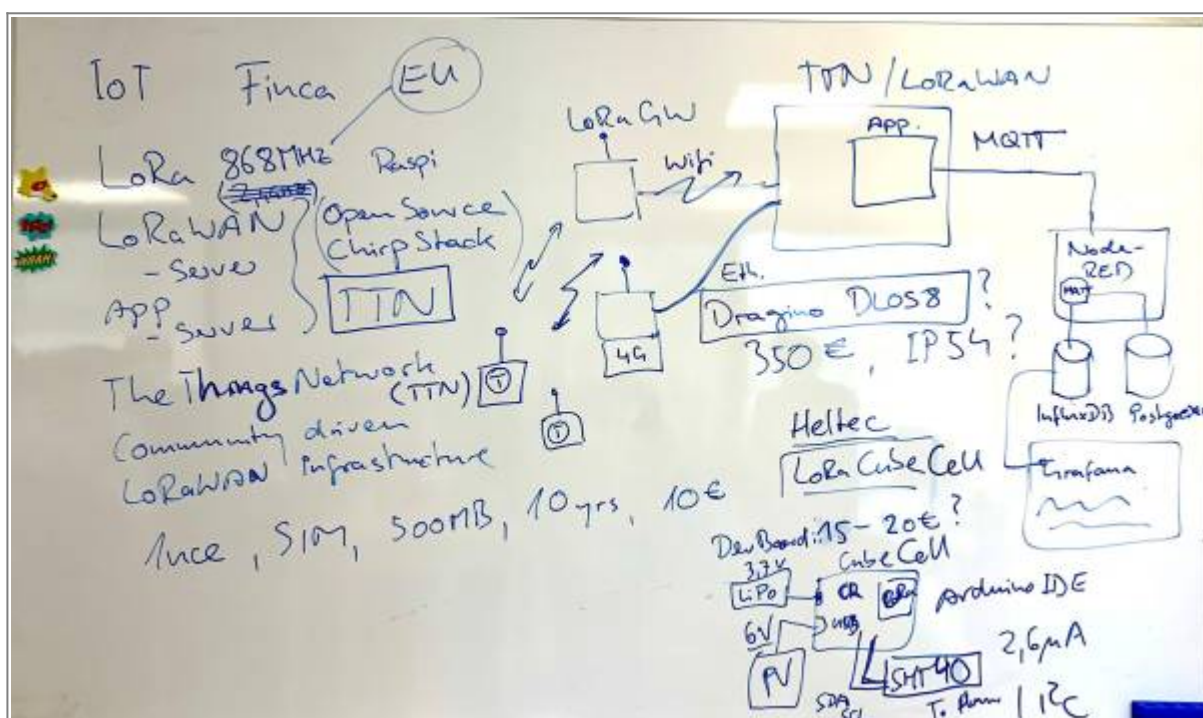 IoT Finca EU
LoRa 868MHz Raspi
LoRaWAN
- Server
APP
- Server
(Open Source
ChirpStack)
TTN
The Things Network
(TTN)
Community driven
LoRaWAN Infrastructure
1nce, SIM, 500MB, 10yrs, 10€
T
T
LoRa GW
Wifi
4G
Eth.
TTN/LoRaWAN
App.
MQTT
Node-
RED
MQTT
InfluxDB
Grafana
Dragino DLOS8 ?
350€, IP54?
Heltec
LoRa CubeCell
Dev Board: 15-20€?
CubeCell
3,7V
LiPo
LoRa
USB
6V
PV
Arduino IDE
2,6µA
SHT40
SDA
SCL
I²C